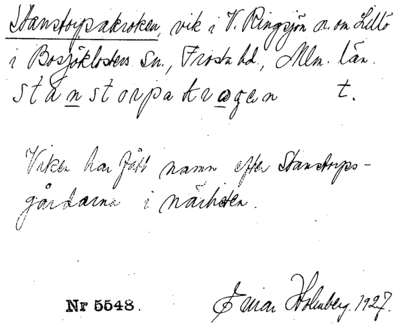 Stanstorpakroken, vik i V. Ringsjön n. om Lillö
i Bosjöklosters Sn., Frosta hd., Mlm. län.
stanstorpakrogen t.
Viken har fått namn efter Stanstorps-
gårdarna i närheten.
Nr 5548. Einar Holmberg. 1927.